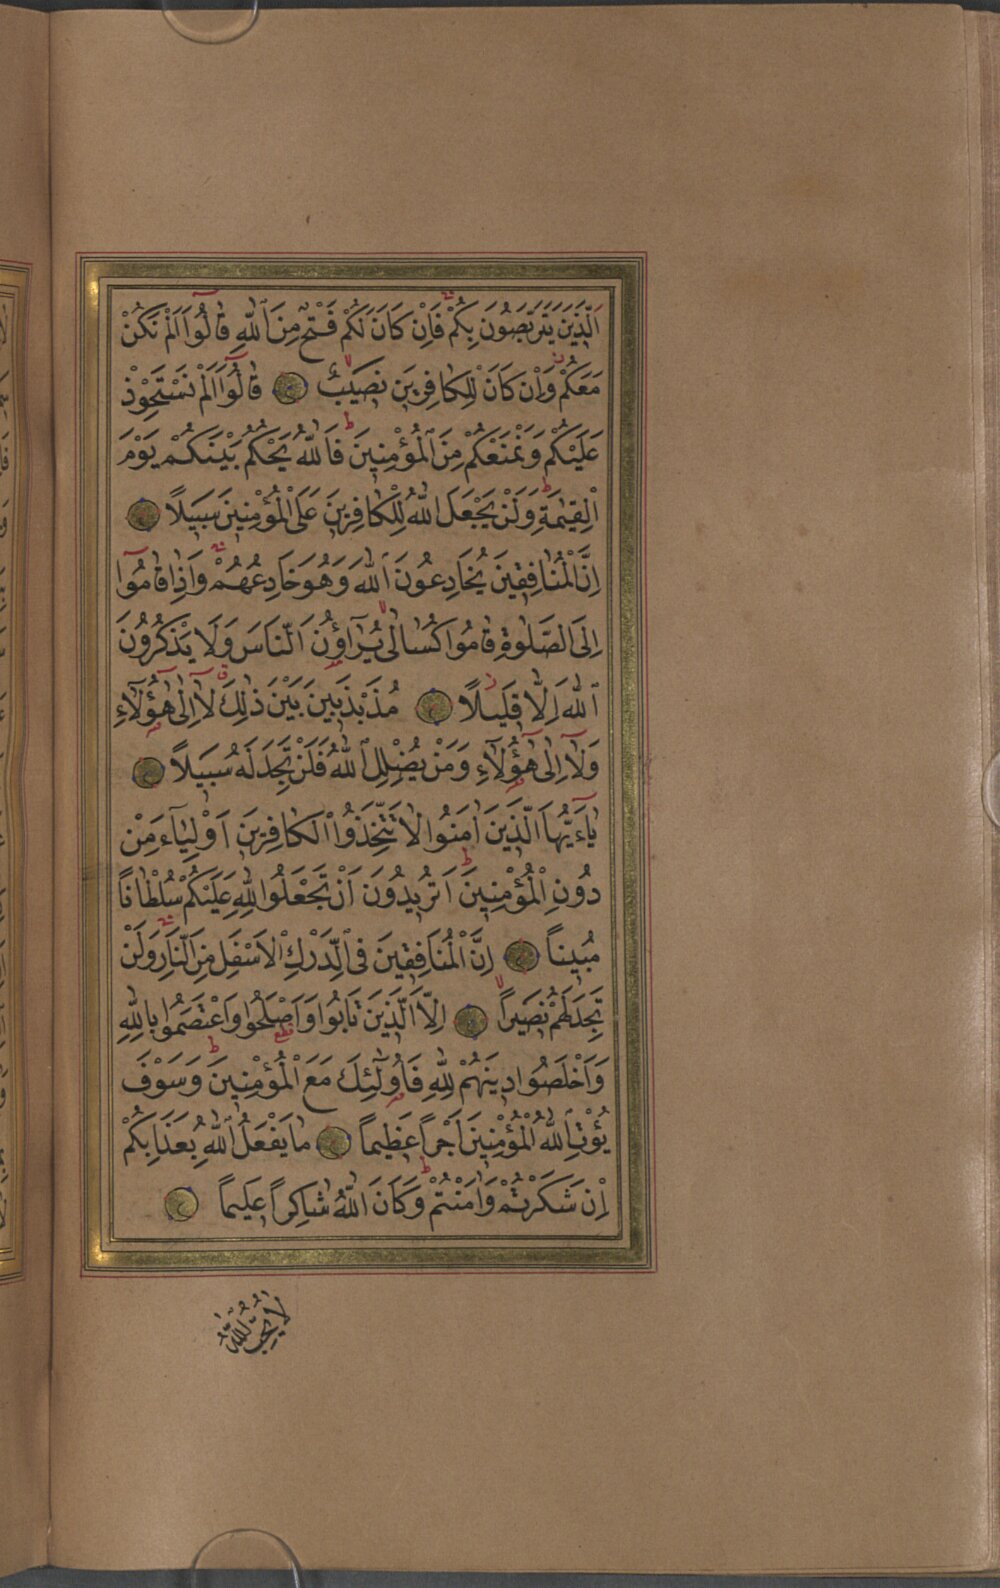 اَلَّذِينَ يَتَرَبَّصُونَ بِكُمْ فَاِنْ كَانَ لَكُمْ فَتْحٌ مِنَ اللّٰهِ قَالُٓوا اَلَمْ نَكُنْ
مَعَكُمْ وَاِنْ كَانَ لِلْكَافِرِينَ نَصِيبٌ قَالُٓوا اَلَمْ نَسْتَحْوِذْ
عَلَيْكُمْ وَنَمْنَعْكُمْ مِنَ الْمُؤْمِنِينَ فَاللّٰهُ يَحْكُمُ بَيْنَكُمْ يَوْمَ
الْقِيٰمَةِ وَلَنْ يَجْعَلَ اللّٰهُ لِلْكَافِرِينَ عَلَى الْمُؤْمِنِينَ سَبِيلًا
اِنَّ الْمُنَافِقِينَ يُخَادِعُونَ اللّٰهَ وَهُوَ خَادِعُهُمْ وَاِذَا قَامُٓوا
اِلَى الصَّلٰوةِ قَامُوا كُسَالٰى يُرَآؤُنَ النَّاسَ وَلَا يَذْكُرُونَ
اللّٰهَ اِلَّا قَلِيلًا مُذَبْذَبِينَ بَيْنَ ذٰلِكَ لَآ اِلٰى هٰٓؤُلَآءِ
وَلَآ اِلٰى هٰٓؤُلَآءِ وَمَنْ يُضْلِلِ اللّٰهُ فَلَنْ تَجِدَ لَهُ سَبِيلًا
يَآءَيُّهَا الَّذِينَ اٰمَنُوا لَا تَتَّخِذُوا الْكَافِرِينَ اَوْلِيَآءَ مِنْ
دُونِ الْمُؤْمِنِينَ اَتُرِيدُونَ اَنْ تَجْعَلُوا لِلّٰهِ عَلَيْكُمْ سُلْطَانًا
مُبِينًا اِنَّ الْمُنَافِقِينَ فِي الدَّرْكِ الْاَسْفَلِ مِنَ النَّارِ وَلَنْ
تَجِدَ لَهُمْ نَصِيرًا اِلَّا الَّذِينَ تَابُوا وَاَصْلَحُوا وَاعْتَصَمُوا بِاللّٰهِ
وَاَخْلَصُوا دِينَهُمْ لِلّٰهِ فَاُولٰٓئِكَ مَعَ الْمُؤْمِنِينَ وَسَوْفَ
يُؤْتِ اللّٰهُ الْمُؤْمِنِينَ اَجْرًا عَظِيمًا مَا يَفْعَلُ اللّٰهُ بِعَذَابِكُمْ
اِنْ شَكَرْتُمْ وَاٰمَنْتُمْ وَكَانَ اللّٰهُ شَاكِرًا عَلِيمًا
لَا يُحِبُّ اللّٰهُ